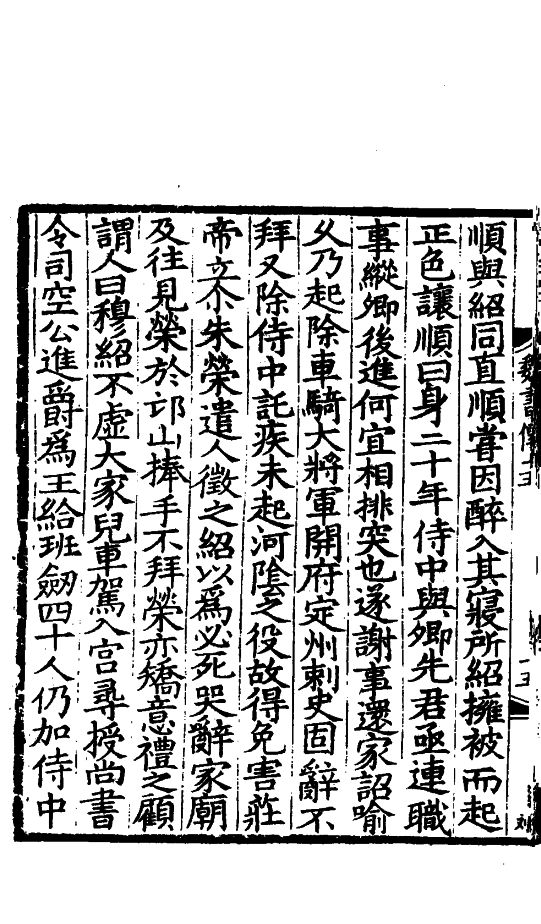 順與紹同直順嘗因醉入其寢所紹擁被而起
正色讓順曰身二十年侍中與卿先君亟連職
事縱卿後進何宜相排突也遂謝事還家詔喻
乆乃起除車騎大將軍開府定州刺史固辭不
拜又除侍中託疾未起河陰之役故得免害莊
帝立尒朱榮遣人徵之紹以爲必死哭辭家廟
及往見榮於邙山捧手不拜榮亦矯意禮之顧
謂人曰穆紹不虛大家兒車駕入宫尋授尚書
令司空公進爵爲王給班劒四十人仍加侍中
魏書傳十五